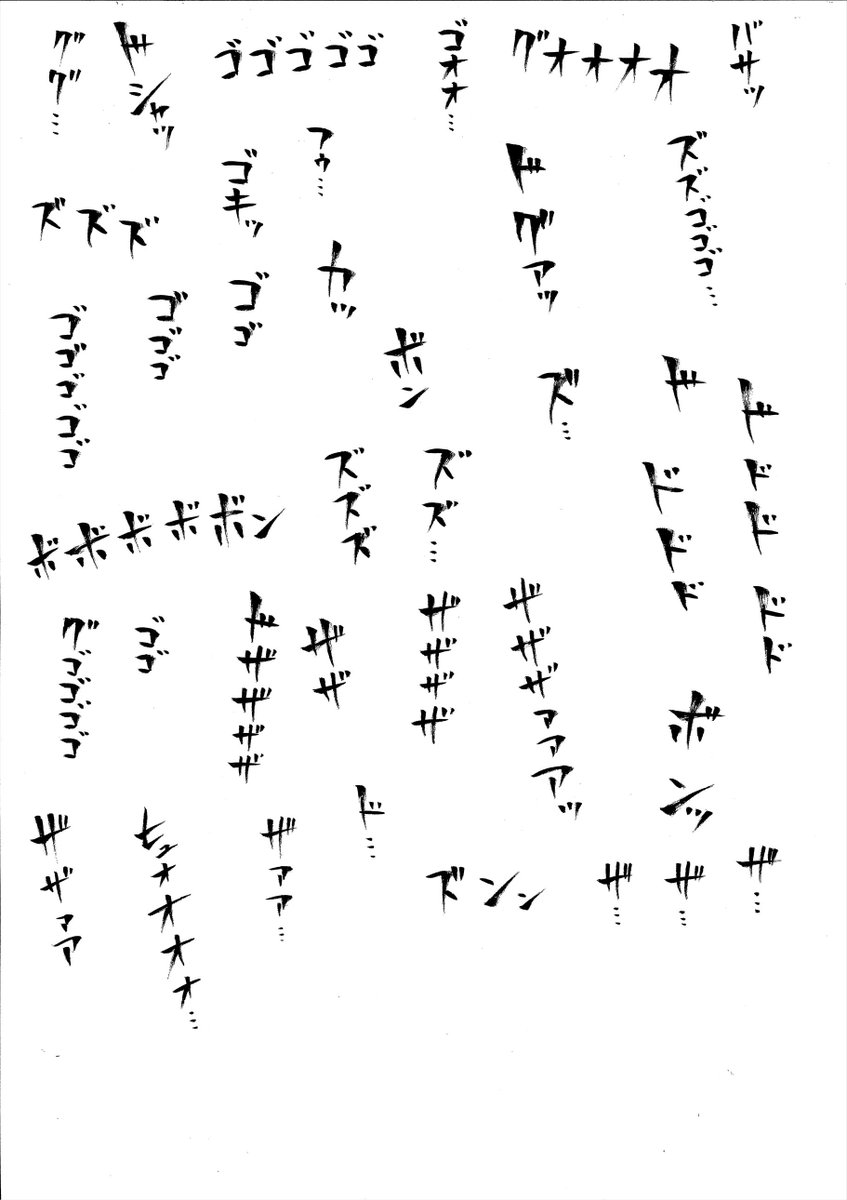 ググ…
ドシャッ
ゴゴゴゴゴ
ゴオオ…
グオオオオ
バサッ
ズズズ
ゴキッ
フゥ…
ドグアッ
ズズゴゴゴ…
ゴゴゴゴゴ
ゴゴゴ
ゴゴ
カッ
ボン
ズ…
ドドドド
ドドドドド
ボボボボボン
ズズズ
ズズ…
グゴゴゴゴ
ゴゴ
ドザザザザ
ザザ
ザザザザ
ザザザァァアッ
ボンッ
ザザァア
ヒュオオオオ…
ザアア…
ド…
ズンン
ザ…
ザ…
ザ…